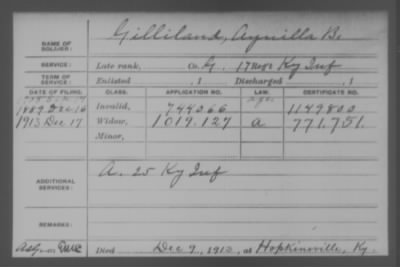 Gilliland, Aquilla B.
NAME OF SOLDIER:
SERVICE: Late rank, Co. G. 17 Reg't Ky Inf
TERM OF SERVICE: Enlisted , 1 Discharged , 1
DATE OF FILING. CLASS. APPLICATION NO. LAW. CERTIFICATE NO.
1889 Dec 16 Invalid, 744066 1149800
1913 Dec 17 Widow, 1019.127 a. 771.751.
Minor,
A. 25 Ky Inf
ADDITIONAL SERVICES:
REMARKS:
Died Dec 9, 1913, at Hopkinsville, Ky.